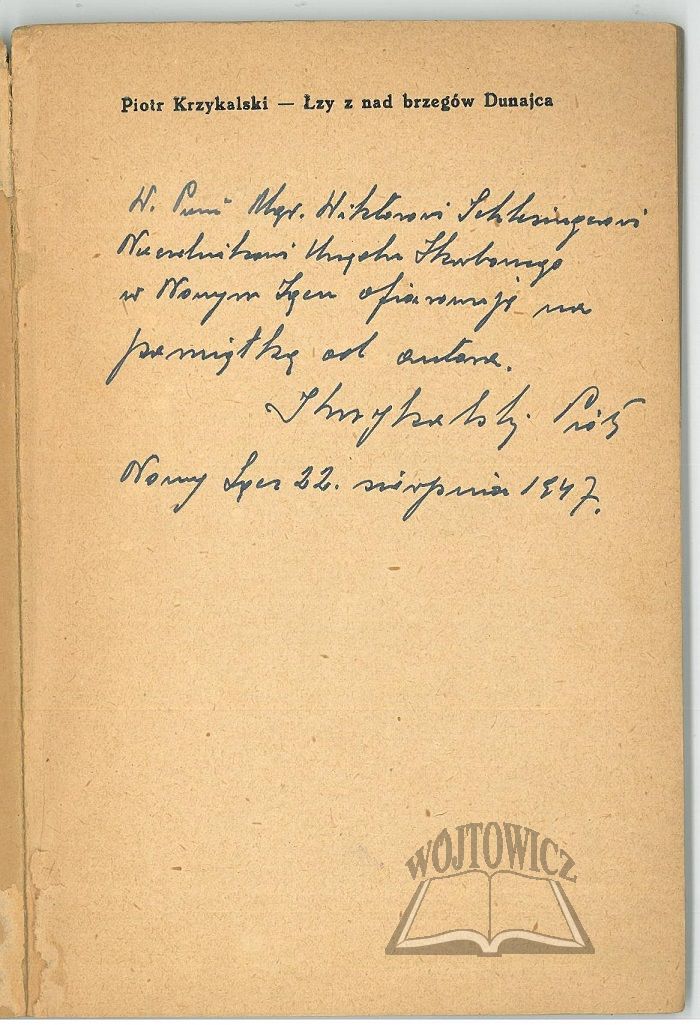 Piotr Krzykalski — Łzy z nad brzegów Dunajca
W. Panu Mgr. Wiktorowi Schlesingerowi
Naczelnikowi Urzędu Skarbowego
w Nowym Sączu ofiarowuję na
pamiątkę od autora.
Krzykalski Piotr
Nowy Sącz 22. sierpnia 1947.
WÓJTOWICZ